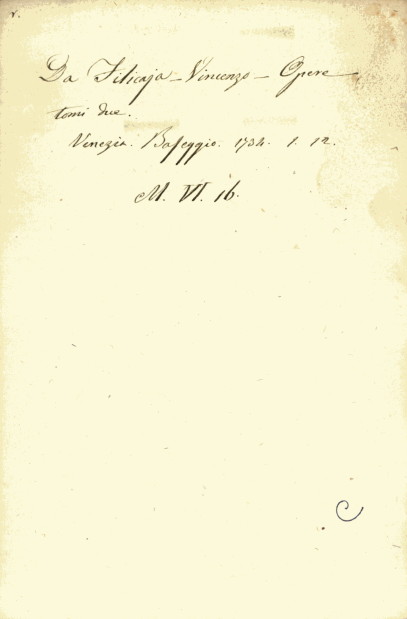 Da Filicaja - Vincenzo - Opere
tomi due.
Venezia. Baseggio. 1734. 1. 12.
M. VI. 16.
C